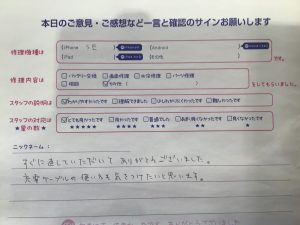 本日のご意見・ご感想など一言と確認のサインお願いします
修理機種は
iPhone SE
Android
iPad
その他
です。
修理内容は
バッテリー交換
画面修理
水没修理
パーツ修理
その他
をしてもらいました。
スタッフの説明は
わかりやすかったです
理解できました
少しわかりづらかったです
難しかったです
スタッフの対応は
★星の数★
とても良かったです
良かったです
普通でした
あまり良くなかったです
良くなかったです
★★★★★
★★★★
★★★
★★
★
ニックネーム:
すぐに直していただいて ありがとうございました。
充電ケーブルの使い方も気をつけたいと思います。